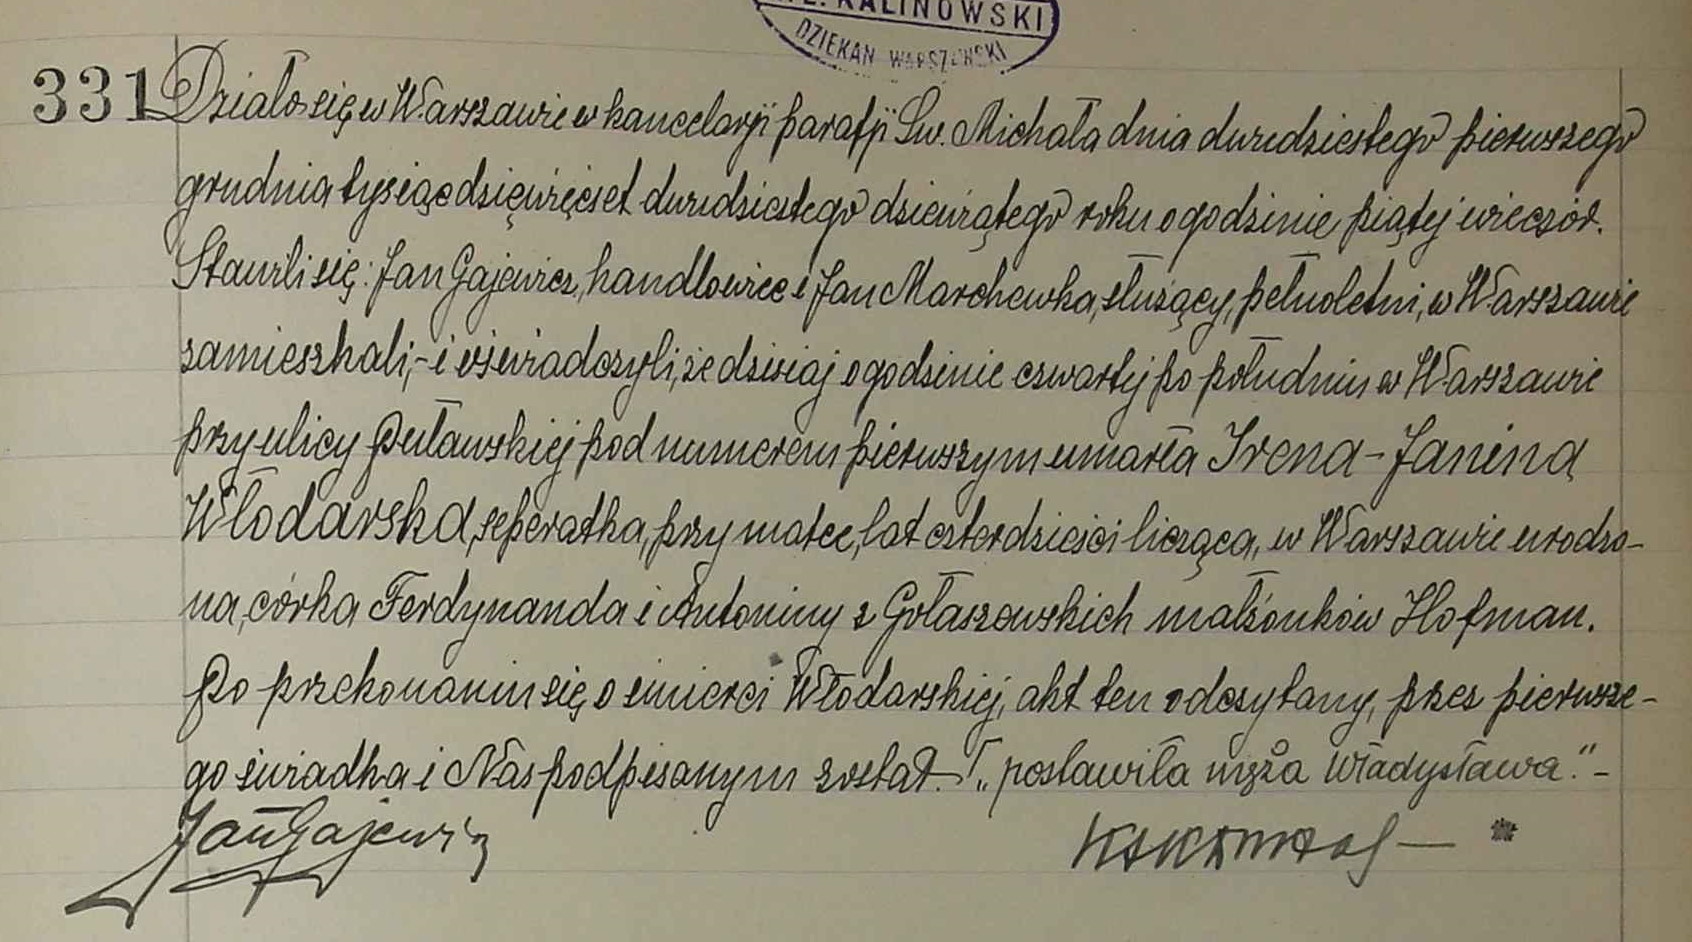 KALINOWSKI
DZIEKAN WARSZAWSKI
331 Działo się w Warszawie w kancelarji parafji Św. Michała dnia dwudziestego pierwszego
grudnia tysiąc dzięwięćset dwudziestego dziewiątego roku o godzinie piątej wieczór.
Stawili się: Jan Gajewicz, handlowiec i Jan Marchewka, służący, pełnoletni, w Warszawie
zamieszkali,- i oświadczyli, że dzisiaj o godzinie czwartej po południu w Warszawie
przy ulicy Puławskiej pod numerem pierwszym umarła Irena-Janina
Włodarska, seperatka, przy matce, lat czterdzieści licząca, w Warszawie urodzo-
na, córka Ferdynanda i Antoniny z Gołaszewskich małżonków Hofman.
Po przekonaniu się o śmierci Włodarskiej, akt ten odczytany, przez pierwsze-
go świadka i Nas podpisanym został. „postawiła męża Władysława."-
Jan Gajewicz